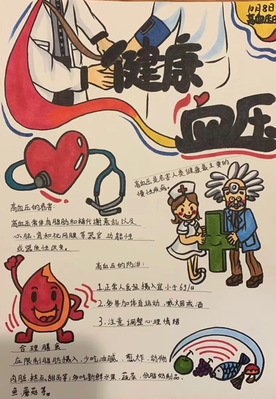 10月8日
高血压日
健康
血压
高血压是危害人类健康最主要的
慢性疾病。
高血压的危害:
高血压常伴有脂肪和糖代谢紊乱以及
心、脑、肾和视网膜等器官功能性
或器质性改变。
高血压的防治:
1.正常人食盐摄入宜小于6g/日
2.多参加体育运动,戒烟限酒
3.注意调整心理情绪
合理膳食
应限制脂肪摄入,少吃油腻、熏炸、动物
内脏,糕点、甜品等;多吃新鲜水果、蔬菜、低脂奶制品、
鱼、蘑菇等。